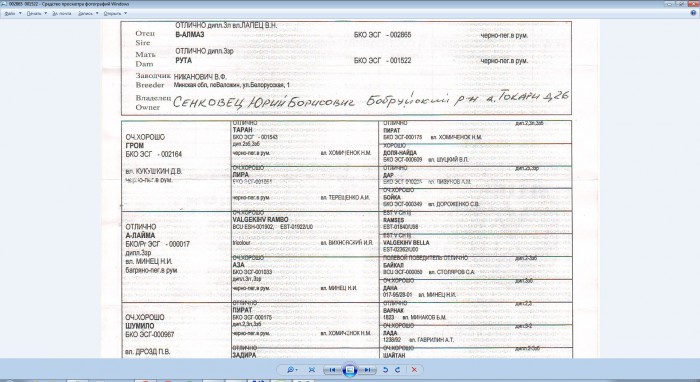 002865 002322 - Средство просмотра фотографий Windows
Файл Печать Эл. почта Запись Открыть
ОТЛИЧНО дипл.3л вл.ЛАПЕЦ В.Н.
Отец В-АЛМАЗ БКО ЭСГ - 002865 черно-пег.в рум.
Sire
ОТЛИЧНО дипл.3зр
Мать РУТА БКО ЭСГ - 001522 черно-пег.в рум.
Dam
Заводчик НИКАНОВИЧ В.Ф.
Breeder Минская обл, ул.Белорусская, 1
Владелец СЕНКОВЕЦ ЮРИЙ БОРИСОВИЧ Бобруйский р-н д. ТОКАРИ Д.26
Owner
ОЧ.ХОРОШО
ГРОМ
БКО ЭСГ - 002164
вл. КУКУШКИН Д.В.
черно-пег.в рум.
ОТЛИЧНО
ТАРАН
БКО ЭСГ - 001543
дип.2зб,2зб
черно-пег.в рум. вл. ХОМИЧЕНОК Н.М.
ОТЛИЧНО дип.2,3л,3зб
ПИРАТ
БКО ЭСГ-000175 вл. ХОМИЧЕНОК Н.М.
ХОРОШО
ДОЛЯ-НАЙДА
БКО ЭСГ-000609 вл. ШУЦКИЙ В.Л.
ОЧ.ХОРОШО
ЛИРА
черно-пег.в рум. вл. ТЕРЕЩЕНКО А.И.
ОТЛИЧНО
ДАР
ОЧ.ХОРОШО
БОЙКА
БКО ЭСГ-000349 вл. ДОРОЖЕНКО С.В.
ОТЛИЧНО
А-ЛАЙМА
БКО/Рг ЭСГ - 000017
дипл.3зр
вл. МИНЕЦ Н.И.
багряно-пег.в рум
ОЧ.ХОРОШО
VALGEKIHV RAMBO
BCU ESH-001802, EST-01922/U0
tricolour вл. ВИХНЕВСКИЙ И.Я.
EST V CH
RAMSES
EST-01840/U98
EST V CH
VALGEKIHV BELLA
EST-02362/U00
ОЧ.ХОРОШО
АЗА
БКО ЭСГ-001033
дипл.3л,3зр
черно-пег.в рум. вл. МИНЕЦ Н.И.
ПОЛЕВОЙ ПОБЕДИТЕЛЬ ОТЛИЧНО
БАЙКАЛ
BCU ЭСГ-000058 вл. СТОЛЯРОВ С.А.
ОЧ.ХОРОШО
ДАНА
017-95/28-01 вл. МИНЕЦ Н.И.
ОЧ.ХОРОШО
ШУМИЛО
БКО ЭСГ-000967
вл. ДРОЗД П.В.
ОТЛИЧНО
ПИРАТ
БКО ЭСГ-000175
дип.2,3л,3зб
черно-пег.в рум. вл. ХОМИЧЕНОК Н.М.
ОТЛИЧНО
ВАРНАК
1823 вл. МИНАКОВ Б.М.
ОЧ.ХОРОШО
ЛАДА
1238/92 вл. ГАВРИЛИН А.Т.
ОТЛИЧНО
ЗАДИРА
ОЧ.ХОРОШО
ШАЙТАН